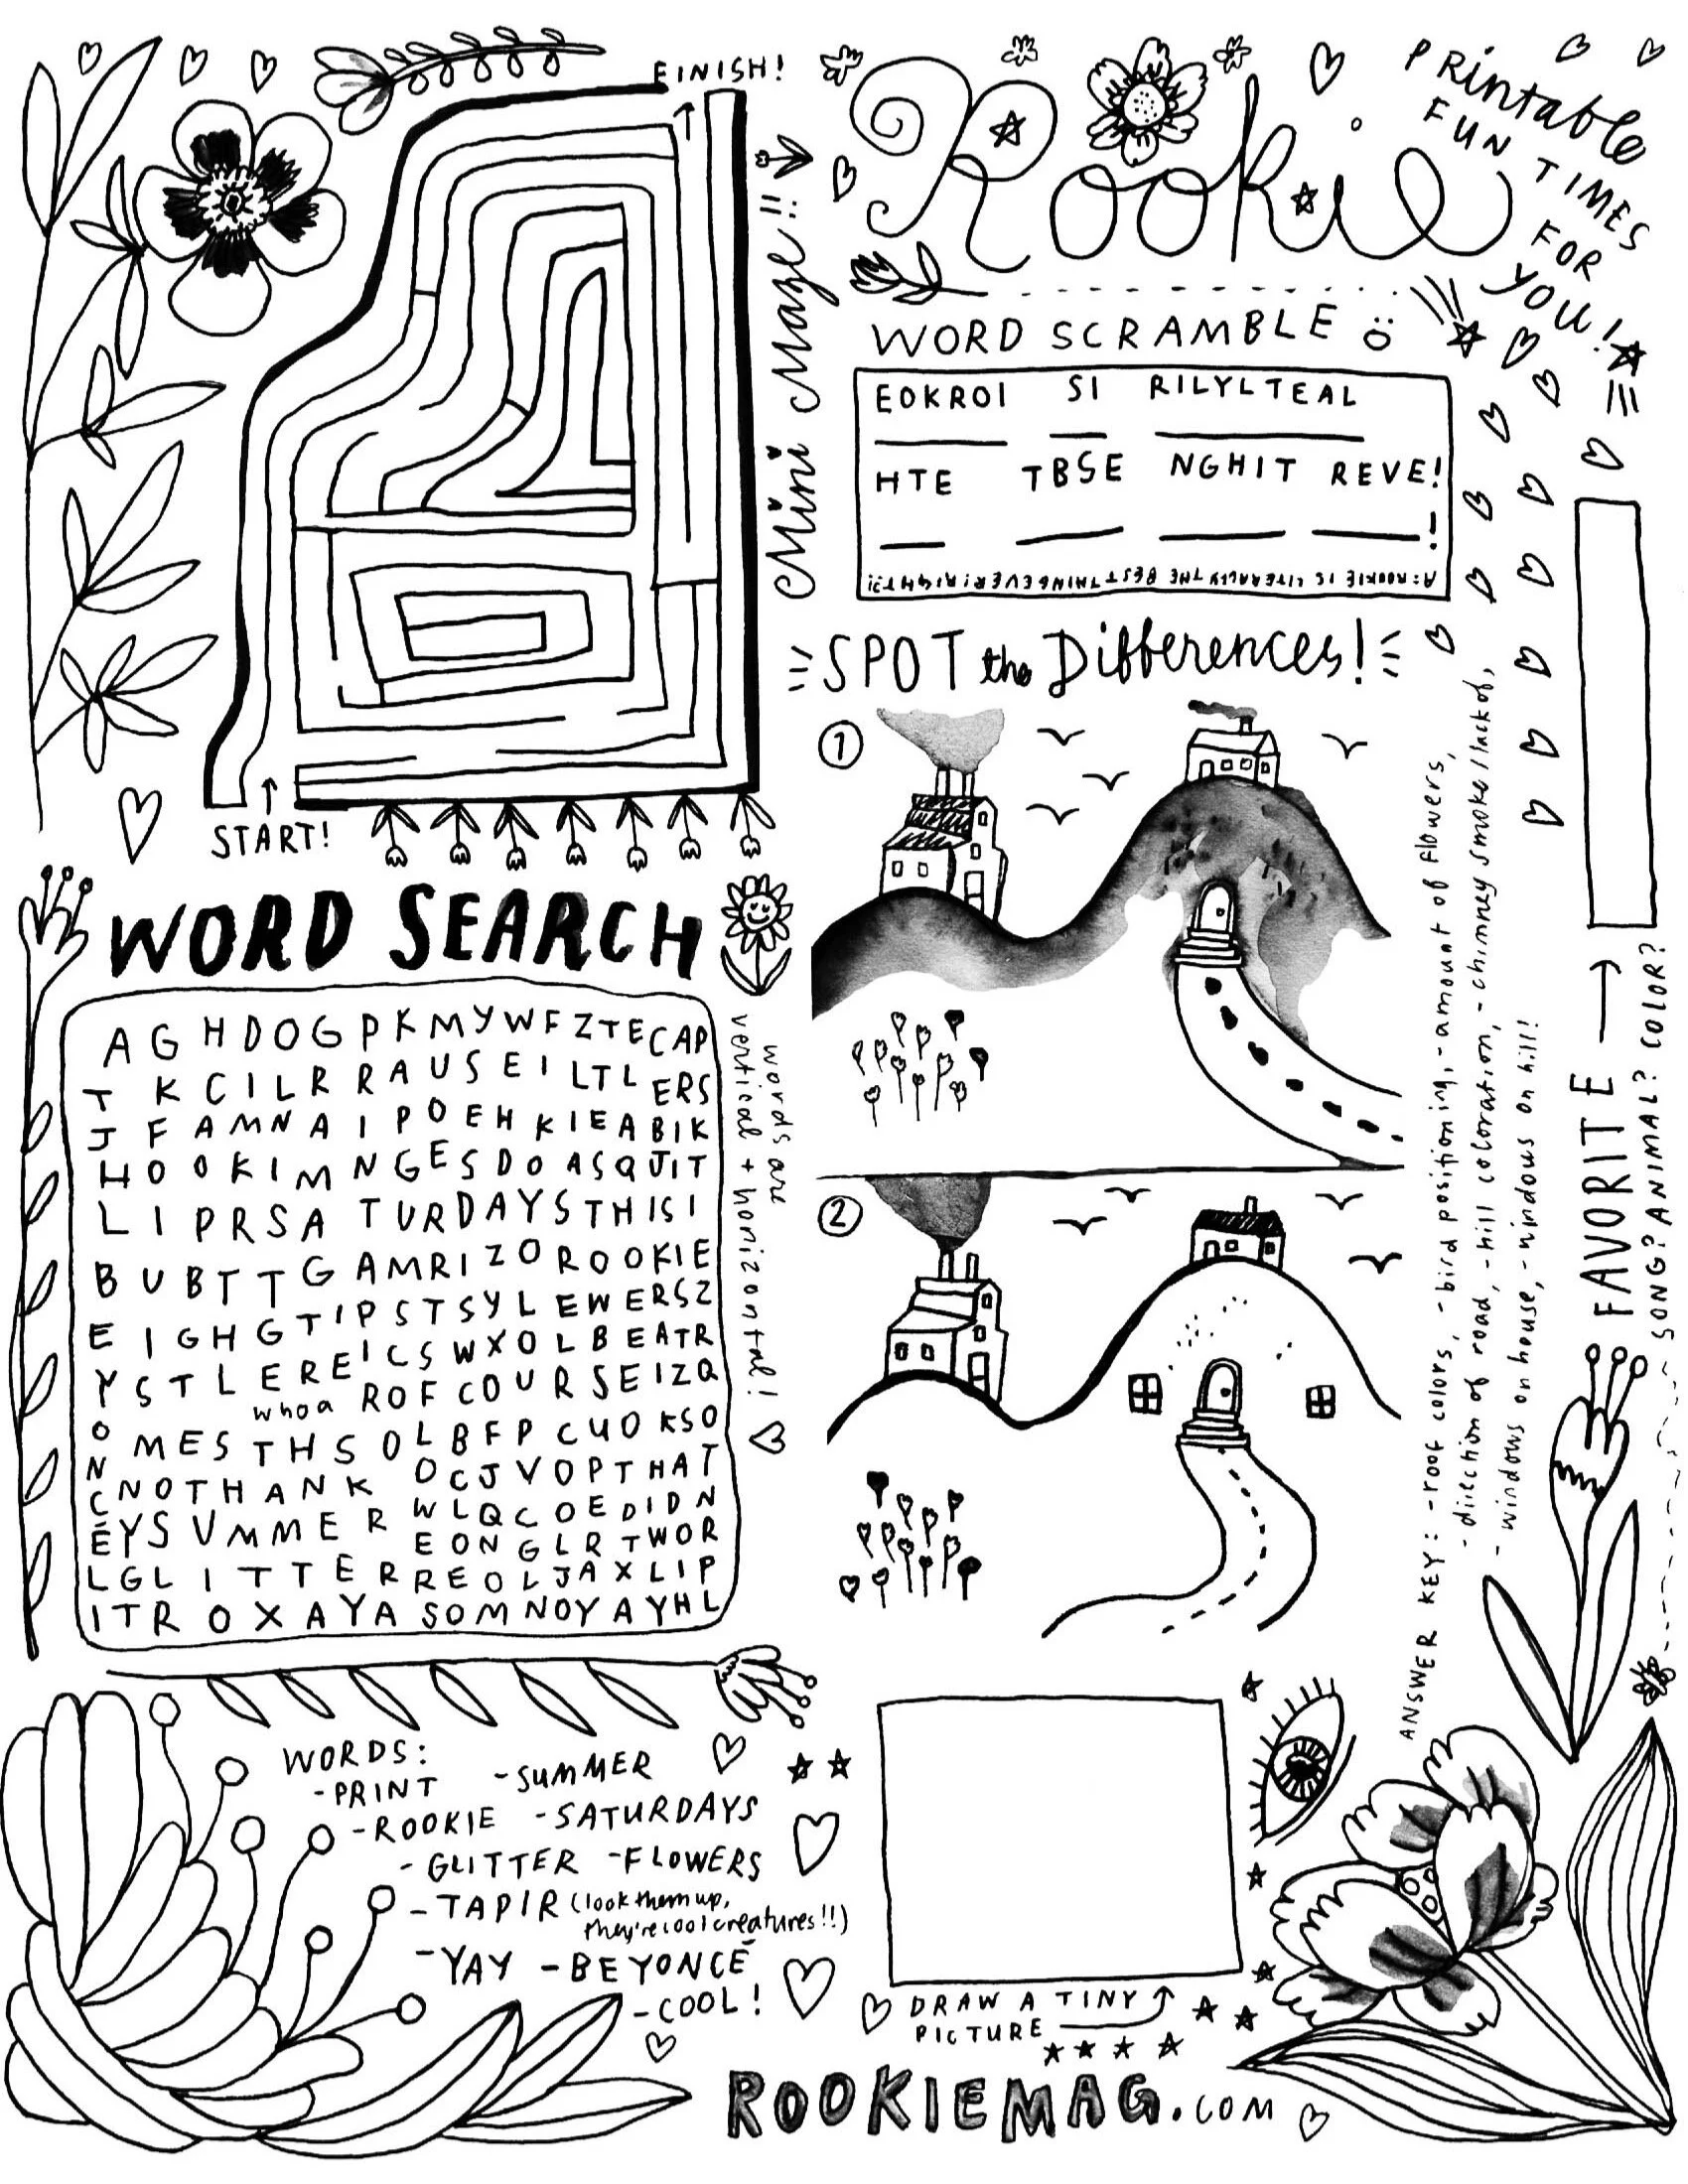 FINISH!
Mini Maze!!
START!
Rookie
PRintable
FUN TIMES
FOR
YOU!
WORD SCRAMBLE
EOKROI SI RILYLTEAL
HTE TBSE NGHIT REVE!
!
A: ROOKIE IS LITERALLY THE BEST THING EVER! RIGHT?!
SPOT the Differences!
1
2
ANSWER KEY: - roof colors, - bird positioning, - amount of flowers,
- direction of road, - hill coloration, - chimney smoke/lack of,
- windows on house, - windows on hill!
FAVORITE
SONG? ANIMAL? COLOR?
WORD SEARCH
words are
vertical + horizontal!
A G H D O G P K M Y W F Z T E C A P
T K C I L R R A U S E I L T L E R S
J F A M N A I P O E H K I E A B I K
H O O K I M N G E S D O A S Q J I T
L I P R S A T U R D A Y S T H I S I
B U B T T G A M R I Z O R O O K I E
E I G H G T I P S T S Y L E W E R S Z
Y S T L E R E I C S W X O L B E A T R
whoa R O F C O U R S E I Z Q
O M E S T H S O L B F P C U O K S O
N N O T H A N K O C J V O P T H A T
C Y S U M M E R W L Q C O E D I D N
É E O N G L R T W O R
L G L I T T E R R E O L J A X L I P
I T R O X A Y A S O M N O Y A Y H L
WORDS:
- PRINT - SUMMER
- ROOKIE - SATURDAYS
- GLITTER - FLOWERS
- TAPIR (look them up,
they're cool creatures!!)
- YAY - BEYONCÉ
- COOL!
DRAW A TINY
PICTURE
ROOKIEMAG.COM